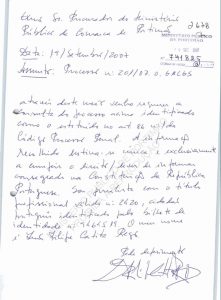 Exmo Sr. Procurador do Ministério
Pública da Comarca de Portimão
2678
MINISTÉRIO PÚBLICO
DE PORTIMÃO
741825
Data: 19/Setembro/2007
Assunto: Processo nº 201/07.0 GALGS
através deste meio venho requerer a
consulta do processo acima identificado
como o estatuído no artº 86 nº
do Código Processo Penal. A informação
recolhida destina-se única e exclusivamente
a cumprir o direito/dever de informar
consagrado na Constituição da República
Portuguesa. Sou jornalista com o título
profissional válido nº 2620, cidadão
português identificado pelo bilhete de
identidade nº O meu nome
é Luís Filipe
Pede deferimento